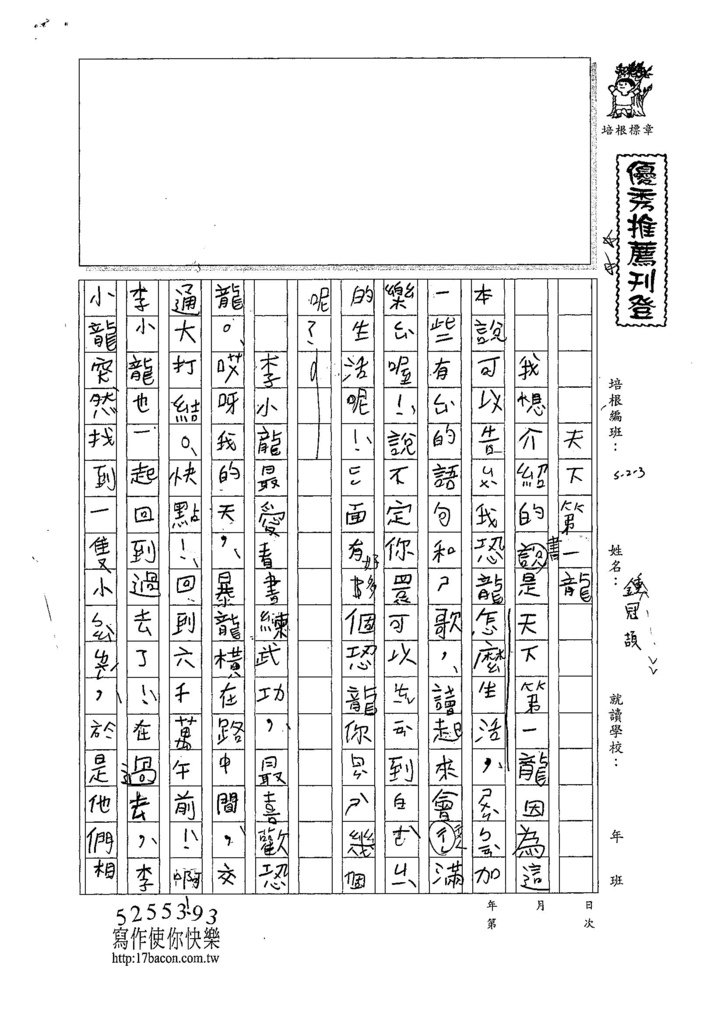 培根標章
優秀推薦刊登
培根編班：5-2-3
姓名：鍾冠頡
就讀學校：
年 班
年 月 日
第 次
天下第一龍
我想介紹的說書是天下第一龍因為這
本說可以告ㄙㄨ我恐龍怎麼生活，
一些有ㄊㄠ的語句和ㄕ歌，讀起來會很滿
樂ㄊㄠ喔！說不定你還可以ㄊㄢ到白
的生活呢！面有好多個恐龍你ㄕ幾個
呢？
李小龍最愛看書練武功，最喜歡恐
龍。哎呀我的天，暴龍橫在路中間，交
通大打結。快點！回到六千萬年前！啊
李小龍也一起回到過去了！在過去，李
小龍突然找到一隻小，於是他們相
5255393
寫作使你快樂
http:17bacon.com.tw